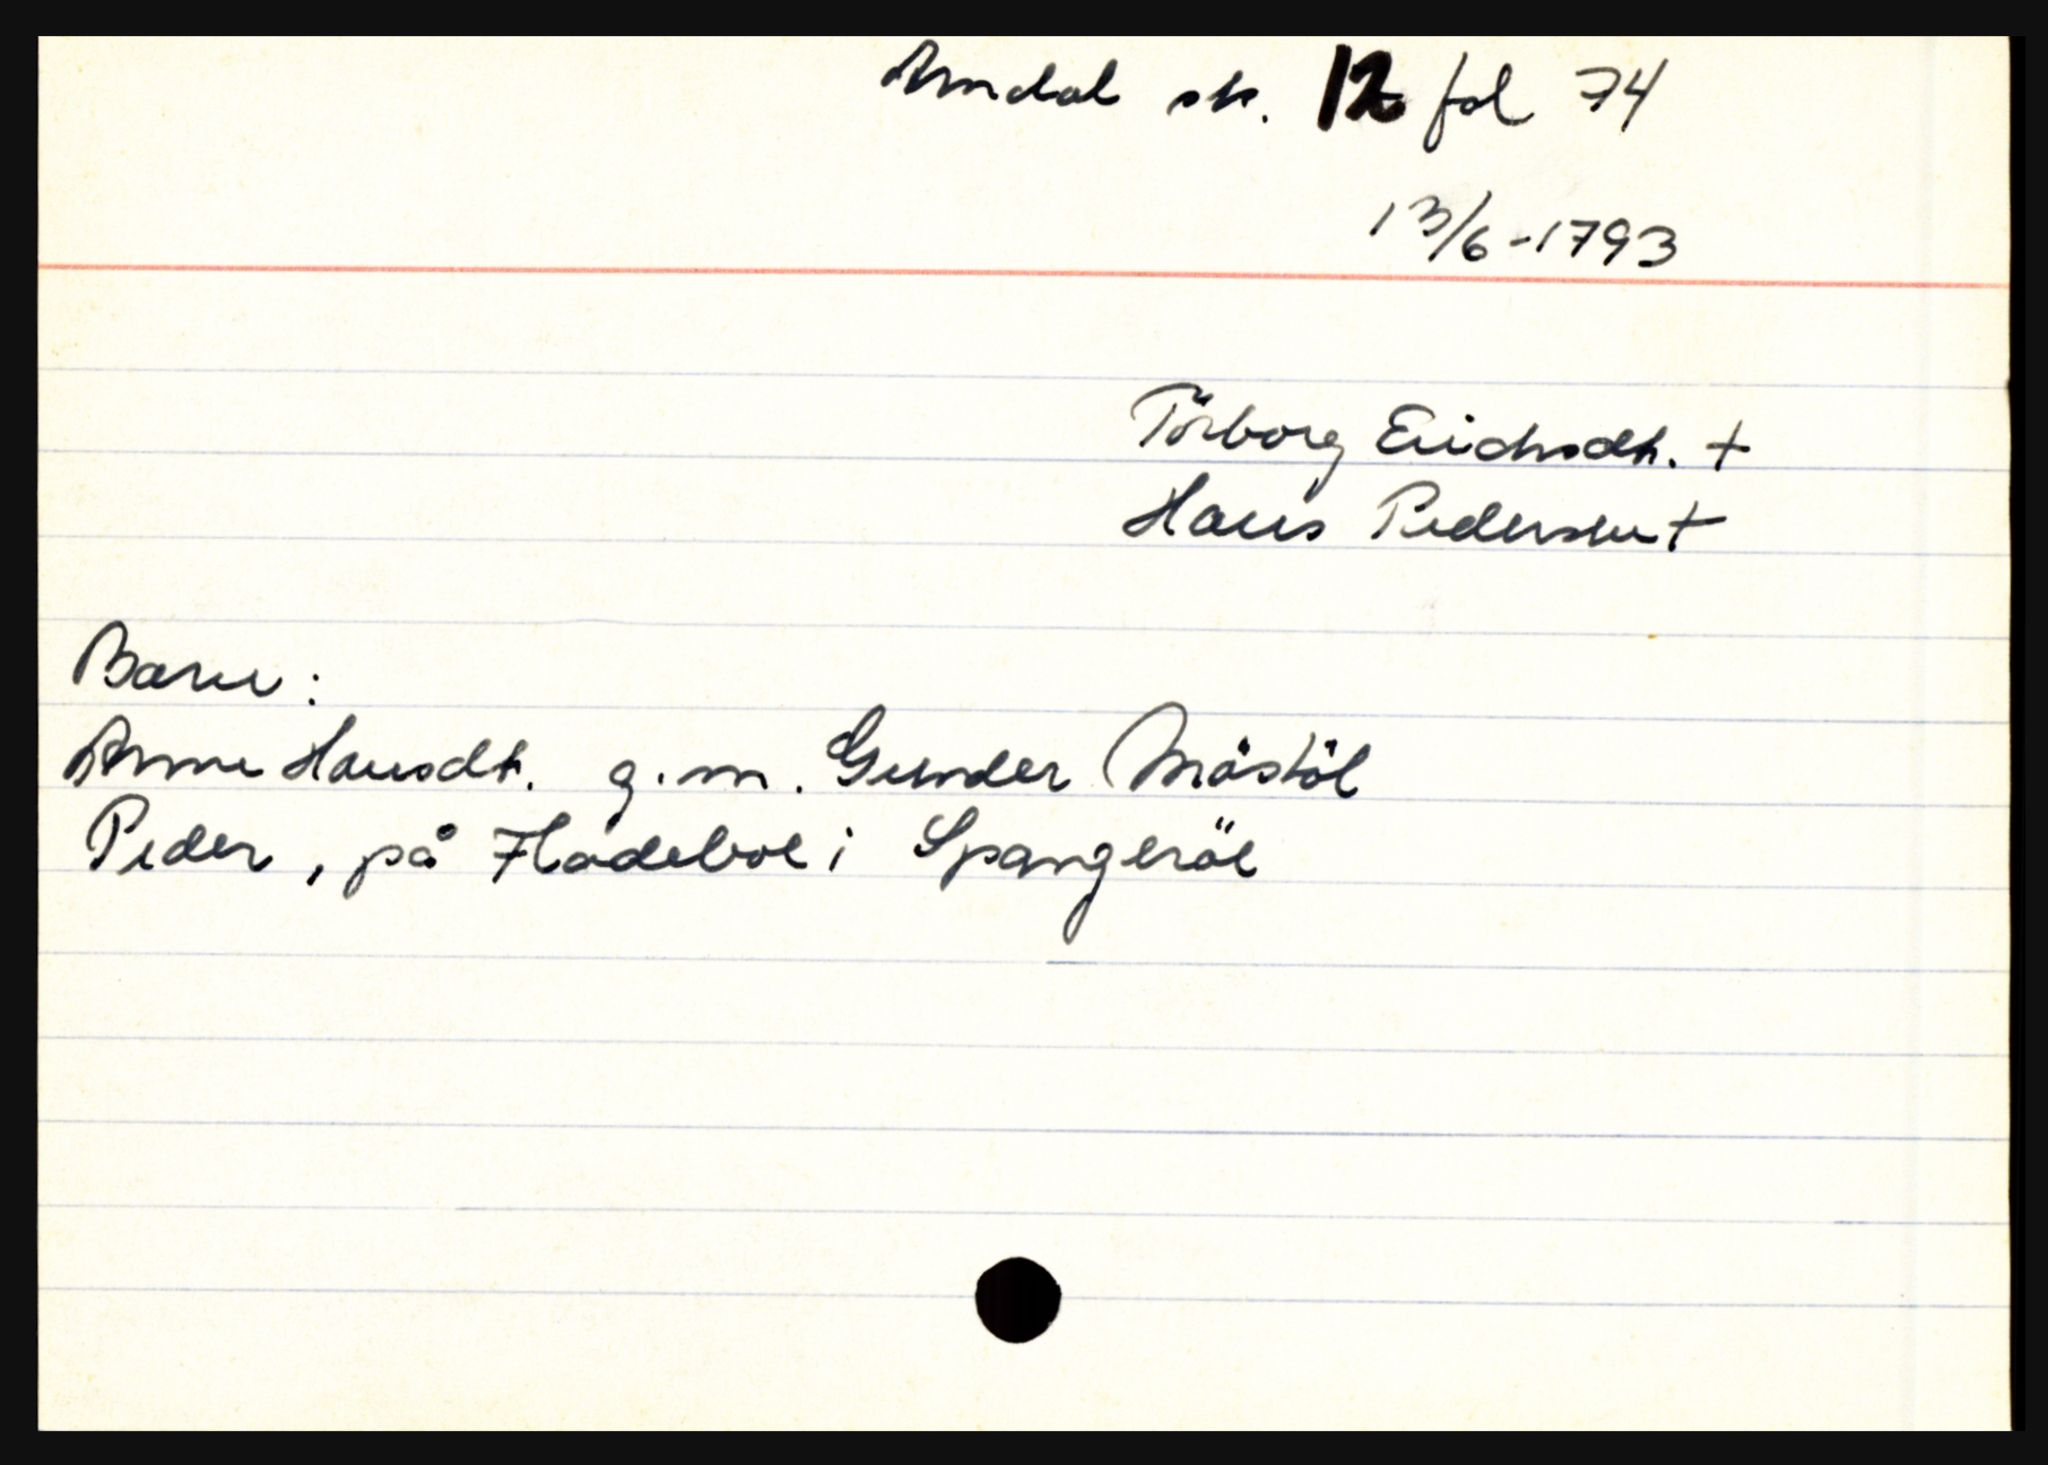 Arndal sk. 12 fol 74
13/6-1793
Törborg Erichsdh. +
Hans Pedersen +
Barn:
Anne Hansdt. g.m. Gunder Möstöl
Peder, på Hadeboe i Spangeröe